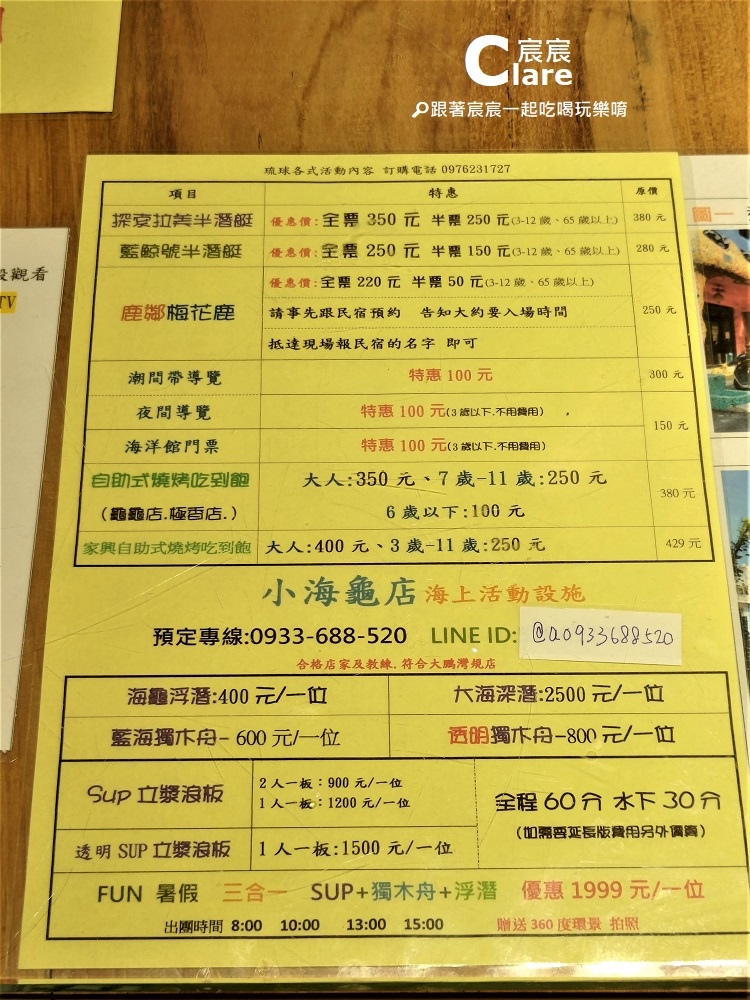 宸宸
Clare
跟著宸宸一起吃喝玩樂唷
段觀看
TV
圖一
琉球各式活動內容 訂購電話 0976231727
項目 特惠 原價
探索拉美半潛艇 優惠價:全票 350 元 半票 250 元(3-12 歲、65 歲以上) 380 元
藍鯨號半潛艇 優惠價:全票 250 元 半票 150 元(3-12 歲、65 歲以上) 280 元
鹿鄰梅花鹿 優惠價:全票 220 元 半票 50 元(3-12 歲、65 歲以上) 250 元
請事先跟民宿預約 告知大約要入場時間
抵達現場報民宿的名字 即可
潮間帶導覽 特惠 100 元 300 元
夜間導覽 特惠 100 元(3 歲以下.不用費用) 150 元
海洋館門票 特惠 100 元(3 歲以下.不用費用)
自助式燒烤吃到飽 大人:350 元、7 歲-11 歲:250 元 380 元
(龜龜店.極香店.) 6 歲以下:100 元
家興自助式燒烤吃到飽 大人:400 元、3 歲-11 歲:250 元 429 元
小海龜店 海上活動設施
預定專線:0933-688-520 LINE ID: @a0933688520
合格店家及教練, 符合大鵬灣規店
海龜浮潛:400 元/一位 大海深潛:2500 元/一位
藍海獨木舟- 600 元/一位 透明獨木舟-800 元/一位
Sup 立漿浪板 2 人一板：900 元/一位
1 人一板：1200 元/一位
全程 60 分 水下 30 分
(如需要延長版費用另外價賣)
透明 SUP 立漿浪板 1 人一板:1500 元/一位
FUN 暑假 三合一 SUP+獨木舟+浮潛 優惠 1999 元/一位
出團時間 8:00 10:00 13:00 15:00 贈送 360 度環景 拍照